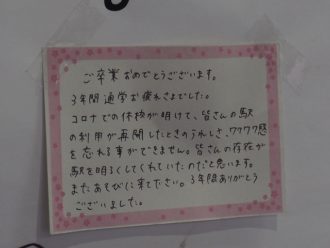 ご卒業おめでとうございます。
3年間通学お疲れさまでした。
コロナでの休校が明けて、皆さんの駅
の利用が再開したときのうれしさ、ワクワク感
を忘れる事ができません。皆さんの存在が
駅を明るくしてくれていたのだと思います。
またあそびに来て下さい。3年間ありがとう
ございました。